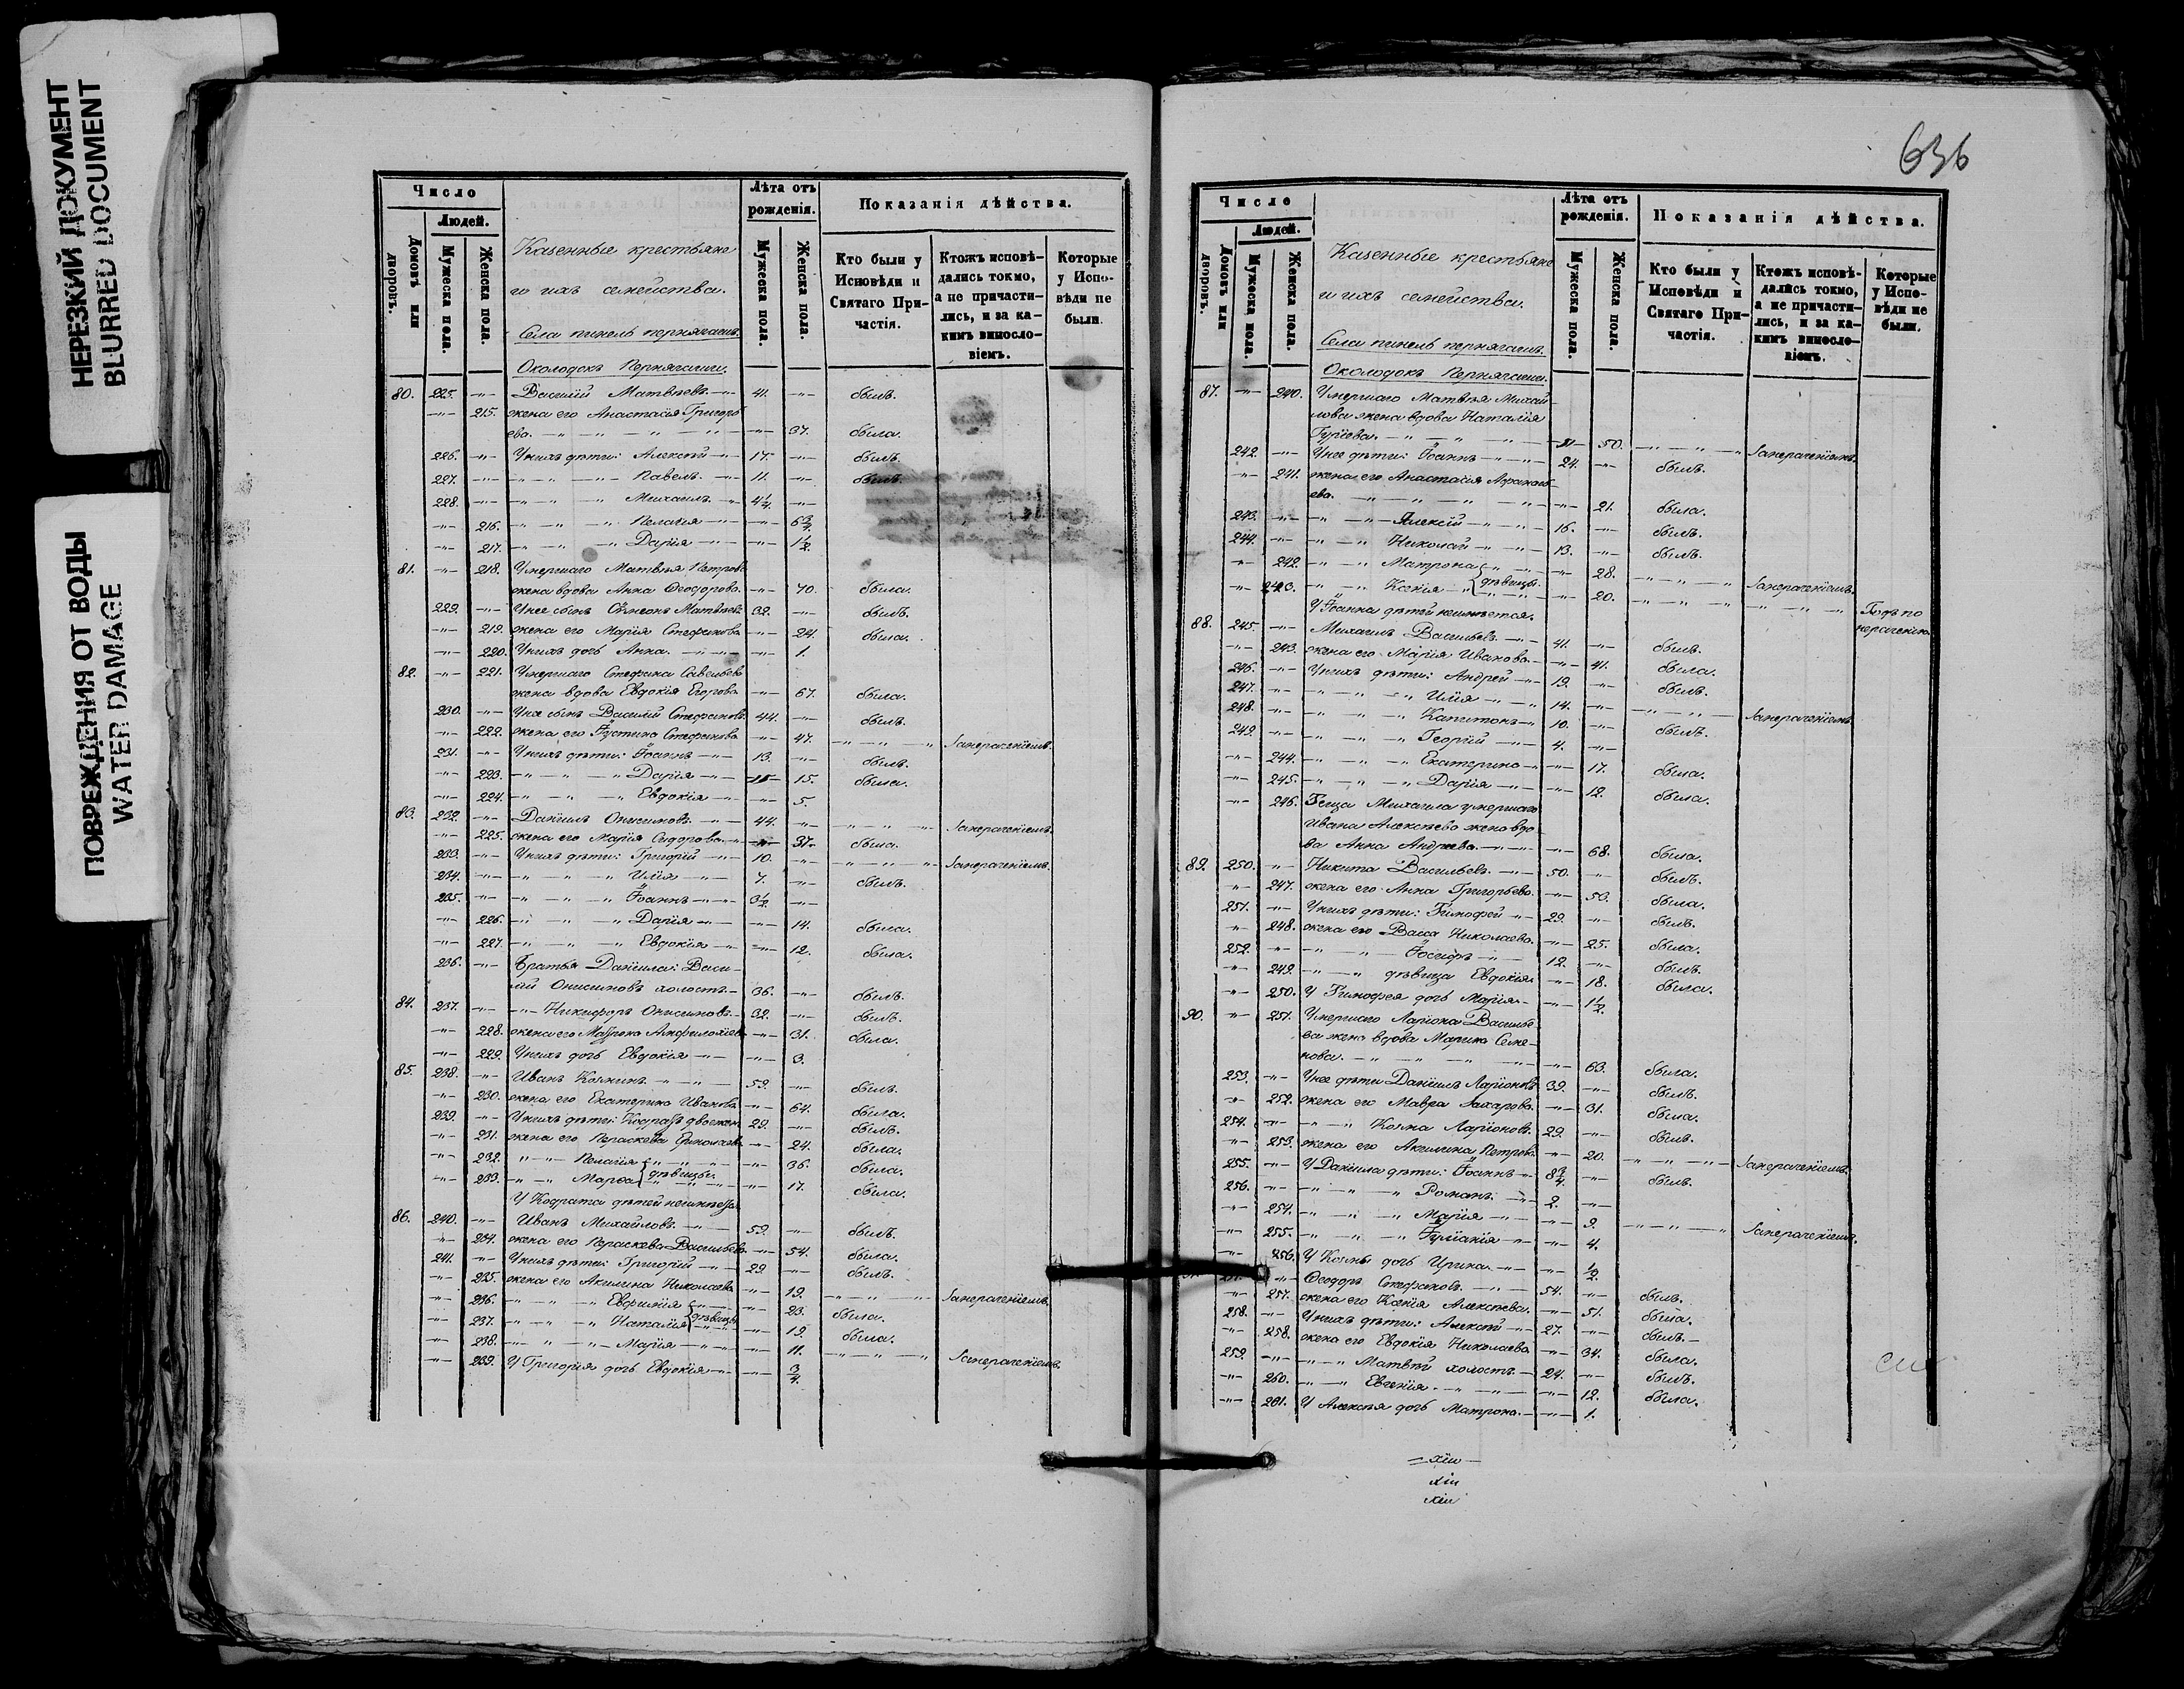 НЕРЕЗКИЙ ДОКУМЕНТ
BLURRED DOCUMENT
ПОВРЕЖДЕНИЯ ОТ ВОДЫ
WATER DAMAGE
Число
Людей.
Домовъ или дворовъ.
Мужеска пола.
Женска пола.
Казенные крестьяне
и ихъ семейства.
Села
Околодокъ
Лѣта отъ рожденія.
Мужеска пола.
Женска пола.
Показанія дѣйства.
Кто были у Исповѣди и Святаго Причастія.
Ктожъ исповѣдались токмо, а не причастились, и за какимъ винословіемъ.
Которые у Исповѣди не были.
80. 225. -"- Василій Матвѣевъ. 41. -"- былъ.
-"- 215. жена его Анастасія Григорь
ева. -"- 37. была.
226. -"- У нихъ дѣти: Алексѣй 17. -"- былъ.
227. -"- Павелъ. 11. -"- былъ.
228. -"- Михаилъ. 4½. -"-
-"- 216. Пелагія -"- 6¾.
-"- 217. Дарія -"- 1½.
81. -"- 218. Умершаго Матвѣя Петрова
жена вдова Анна Ѳеодорова. -"- 70. была.
229. -"- У нее сынъ Сѵмеонъ Матвѣевъ 32. -"- былъ.
-"- 219. жена его Марія Стефанова -"- 24. была.
-"- 220. У нихъ дочь Анна. -"- 1.
82. -"- 221. Умершаго Стефана Савельева
жена вдова Евдокія Егорова -"- 67. была.
230. -"- У нее сынъ Василій Стефановъ 44. -"- былъ.
-"- 222. жена его Іустина Стефанова -"- 47. За нераченіемъ.
231. -"- У нихъ дѣти: Іоаннъ 13. -"- былъ.
-"- 223. Дарія 15. была.
-"- 224. Евдокія -"- 5.
83. 232. -"- Даніилъ Онисимовъ. 44. -"- За нераченіемъ.
-"- 225. жена его Марія Сидорова. -"- 37. была.
233. -"- У нихъ дѣти: Григорій 10. -"- За нераченіемъ.
234. -"- Илія 7. -"- былъ.
235. -"- Іоаннъ 3½. -"-
-"- 226. Дарія -"- 14. была.
-"- 227. Евдокія -"- 12. была.
236. -"- Братья Даніила: Васи-
лій Онисимовъ холостъ. 36. -"- былъ.
84. 237. -"- Никифоръ Онисимовъ. 32. -"- былъ.
-"- 228. жена его Матрона Амфилохіева -"- 31. была.
-"- 229. У нихъ дочь Евдокія -"- 3.
85. 238. -"- Иванъ Козминъ. 59. -"- былъ.
-"- 230. жена его Екатерина Иванова -"- 64. была.
239. -"- У нихъ дѣти: Кодратъ двоежен. 29. -"- былъ.
-"- 231. жена его Параскева -"- 24. была.
-"- 232. Пелагія -"- 36. была.
-"- 233. Марѳа } дѣвицы. -"- 17. была.
У Кодрата дѣтей неимѣется.
86. 240. -"- Иванъ Михайловъ. 59. -"- былъ.
-"- 234. жена его Параскева Васильева -"- 54. была.
241. -"- У нихъ дѣти: Григорій 29. -"- былъ.
-"- 235. жена его Акилина Николаева -"- 19. За нераченіемъ.
-"- 236. Евфимія -"- 23. была.
-"- 237. Наталія } дѣвицы -"- 19. была.
-"- 238. Марія -"- 11. За нераченіемъ.
-"- 239. У Григорія дочь Евдокія -"- ¾.
636
Число
Людей.
Домовъ или дворовъ.
Мужеска пола.
Женска пола.
Казенные крестьяне
и ихъ семейства.
Села
Околодокъ
Лѣта отъ рожденія.
Мужеска пола.
Женска пола.
Показанія дѣйства.
Кто были у Исповѣди и Святаго Причастія.
Ктожъ исповѣдались токмо, а не причастились, и за какимъ винословіемъ.
Которые у Исповѣди не были.
87. -"- 240. Умершаго Матвѣя Михай-
лова жена вдова Наталія
Гуріева. 50. За нераченіемъ.
242. -"- У нее дѣти: Іоаннъ 24. -"- былъ.
-"- 241. жена его Анастасія
ева. -"- 21. была.
243. -"- Алексій 16. -"- былъ.
244. -"- Николай 13. -"- былъ.
-"- 242. Матрона -"- 28. За нераченіемъ.
-"- 243. Ксенія } дѣвицы. -"- 20. -"-
У Іоанна дѣтей неимѣется.
88. 245. -"- Михаилъ Васильевъ. 41. -"- былъ.
-"- 243. жена его Марія Иванова. -"- 41. была.
246. -"- У нихъ дѣти: Андрей 19. -"- былъ.
247. -"- Илія 14. -"- За нераченіемъ.
248. -"- Капитонъ 10. -"- былъ.
249. -"- Георгій 4. -"-
-"- 244. Екатерина -"- 17. была.
-"- 245. Дарія -"- 12. была.
-"- 246. Теща Михаила умершаго
Ивана Алексѣева жена вдо
ва Анна Андреева. -"- 68. была.
89. 250. -"- Никита Васильевъ. 50. -"- былъ.
-"- 247. жена его Анна Григорьева. -"- 50. была.
251. -"- У нихъ дѣти: Тимофей 29. -"- былъ.
-"- 248. жена его Васса Николаева. -"- 25. была.
252. -"- Іосифъ 12. -"- былъ.
-"- 249. дѣвица Евдокія -"- 18. была.
-"- 250. У Тимофея дочь Марія -"- 1½.
90. -"- 251. Умершаго Ларіона Василье
ва жена вдова Марина Семе-
нова. -"- 63. была.
253. -"- У нее дѣти Даніилъ Ларіоновъ 39. -"- былъ.
-"- 252. жена его Мавра Захарова. -"- 31. была.
254. -"- Козма Ларіоновъ. 29. -"- былъ.
-"- 253. жена его Акилина Петрова. -"- 20. За нераченіемъ.
255. -"- У Даніила дѣти: Іоаннъ 8¾. -"- былъ.
256. -"- Романъ. 2. -"-
-"- 254. Марія -"- 9. За нераченіемъ.
-"- 255. Іуліанія -"- 4.
-"- 256. У Козмы дочь Ирина. -"- ½.
-"- Ѳеодоръ Стефановъ. 54. -"- былъ.
-"- 257. жена его Ксенія Алексѣева. -"- 51. была.
258. -"- У нихъ дѣти: Алексѣй 27. -"- былъ.
-"- 258. жена его Евдокія Николаева -"- 34. была.
259. -"- Матвѣй холостъ. 24. -"- былъ.
-"- 260. Евгенія. -"- 12. была.
-"- 261. У Алексѣя дочь Матрона. -"- 1.